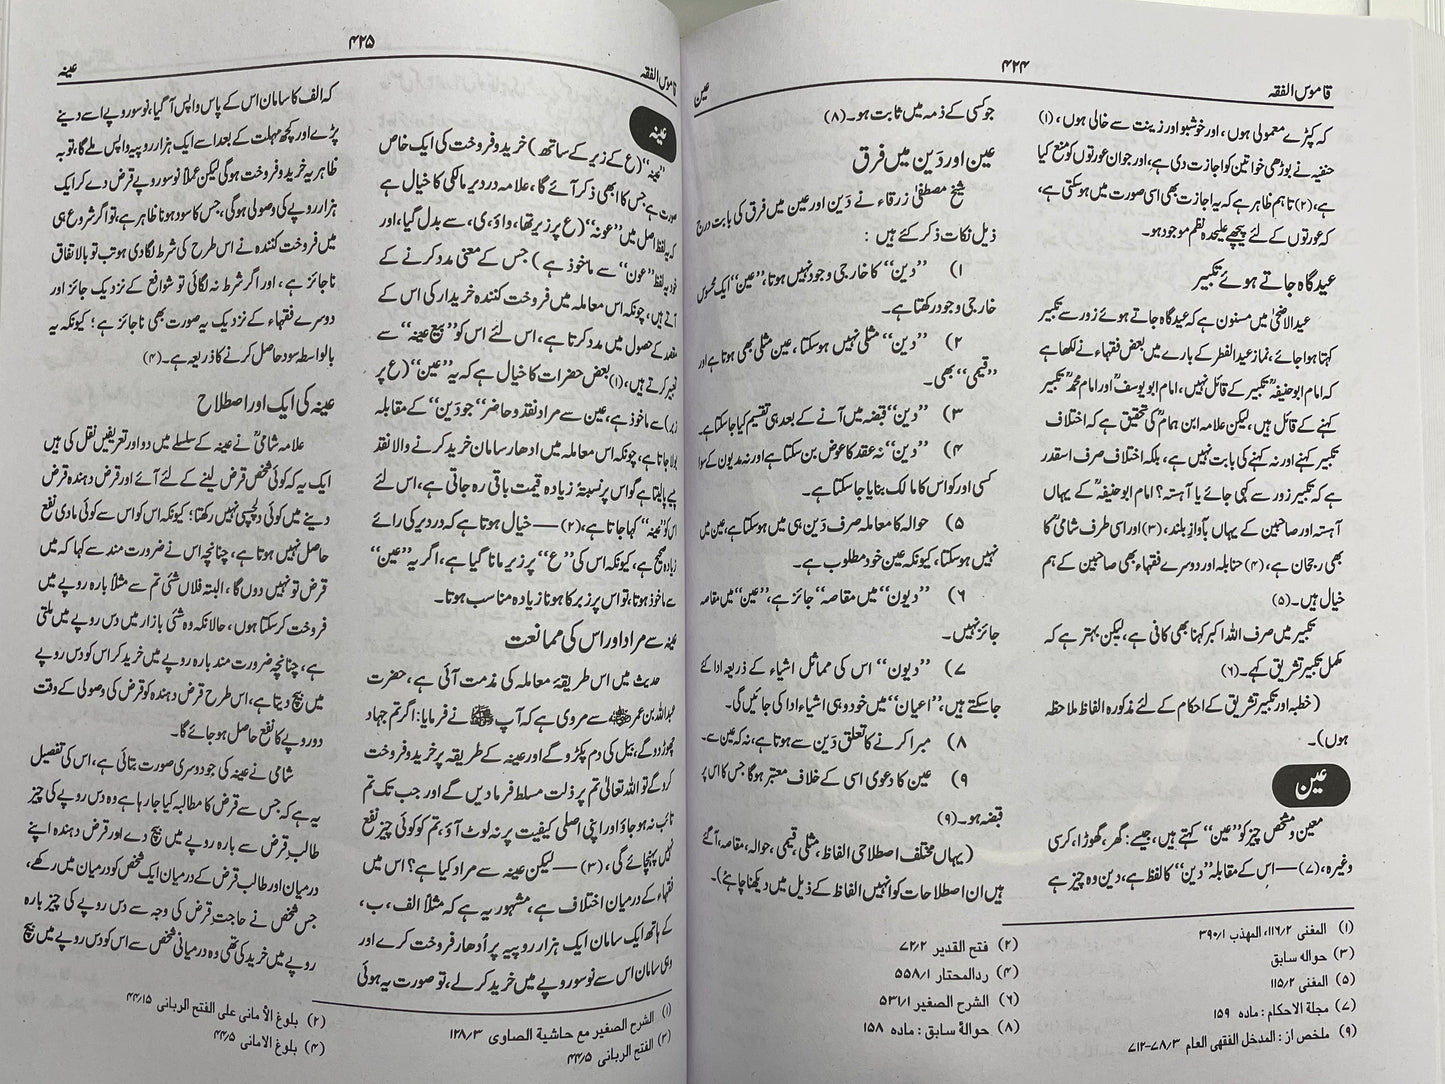 ۴۲۴
قاموس الفقہ
عین
کہ کپڑے معمولی ہوں ، اور خوشبو اور زینت سے خالی ہوں ، (۱)
حنفیہ نے بوڑھی خواتین کو اجازت دی ہے، اور جوان عورتوں کو منع کیا
ہے، (۲) تاہم ظاہر ہے کہ یہ اجازت بھی اسی صورت میں ہو سکتی ہے،
کہ عورتوں کے لئے پیچھے علیحدہ نظم موجود ہو۔
عیدگاہ جاتے ہوئے تکبیر
عید الاضحیٰ میں مسنون ہے کہ عیدگاہ جاتے ہوئے زور سے تکبیر
کہتا ہوا جائے ، نماز عید الفطر کے بارے میں بعض فقہاء نے لکھا ہے
کہ امام ابوحنیفہؒ تکبیر کے قائل نہیں ، امام ابو یوسفؒ اور امام محمدؒ تکبیر
کہنے کے قائل ہیں ، لیکن علامہ ابن ہمامؒ کی تحقیق ہے کہ اختلاف
تکبیر کہنے اور نہ کہنے کی بابت نہیں ہے ، بلکہ اختلاف صرف اسقدر
ہے کہ تکبیر زور سے کہی جائے یا آہستہ ؟ امام ابوحنیفہؒ کے یہاں
آہستہ اور صاحبین کے یہاں بآواز بلند ، (۳) اور اسی طرف شامیؒ کا
بھی رجحان ہے ، (۴) حنابلہ اور دوسرے فقہاء بھی صاحبین کے ہم
خیال ہیں ۔ (۵)
تکبیر میں صرف اللہ اکبر کہنا بھی کافی ہے ، لیکن بہتر ہے کہ
مکمل تکبیر تشریق کہے ۔ (۶)
(خطبہ اور تکبیر تشریق کے احکام کے لئے مذکورہ الفاظ ملاحظہ
ہوں ) ۔
عین
معین و مشخص چیز کو ”عین“ کہتے ہیں ، جیسے : گھر ، گھوڑا ، کرسی
وغیرہ ، (۷) — اس کے مقابلہ ”دین“ کا لفظ ہے ، دین وہ چیز ہے
جو کسی کے ذمہ میں ثابت ہو ۔ (۸)
عین اور دَین میں فرق
شیخ مصطفیٰ زرقاء نے دَین اور عین میں فرق کی بابت درج
ذیل نکات ذکر کئے ہیں :
۱) ”دین“ کا خارجی وجود نہیں ہوتا ، ”عین“ ایک محسوس
خارجی وجود رکھتا ہے ۔
۲) ”دین“ مثلی نہیں ہو سکتا ، عین مثلی بھی ہوتا ہے اور
”قیمی“ بھی ۔
۳) ”دین“ قبضہ میں آنے کے بعد ہی تقسیم کیا جا سکتا ہے ۔
۴) ”دین“ نہ عقد کا عوض بن سکتا ہے اور نہ مدیون کے سوا
کسی اور کو اس کا مالک بنایا جا سکتا ہے ۔
۵) حوالہ کا معاملہ صرف دَین ہی میں ہو سکتا ہے، عین میں
نہیں ہو سکتا ، کیونکہ عین خود مطلوب ہے ۔
۶) ”دیون“ میں مقاصہ جائز ہے ، ”عین“ میں مقاصہ
جائز نہیں ۔
۷) ”دیون“ اس کی مماثل اشیاء کے ذریعہ ادا کئے
جا سکتے ہیں ، ”اعیان“ میں خود وہی اشیاء ادا کی جائیں گی ۔
۸) مبرا کرنے کا تعلق دَین سے ہوتا ہے ، نہ کہ عین سے ۔
۹) عین کا دعویٰ اسی کے خلاف معتبر ہوگا جس کا اس پر
قبضہ ہو ۔ (۹)
(یہاں مختلف اصطلاحی الفاظ ، مثلی ، قیمی ، حوالہ ، مقاصہ ، آ گئے
ہیں ان اصطلاحات کو انہیں الفاظ کے ذیل میں دیکھنا چاہئے) ۔
(۱) المغنی ۱۱۶/۲، المهذب ۳۹۰/۱
(۲) فتح القدیر ۷۲/۲
(۳) حوالہ سابق
(۴) ردالمحتار ۵۵۸/۱
(۵) المغنی ۱۱۵/۲
(۶) الشرح الصغیر ۵۳۱/۱
(۷) مجلة الاحکام : مادہ ۱۵۹
(۸) حوالۂ سابق : مادہ ۱۵۸
(۹) ملخص از : المدخل الفقهی العام ۷۸/۳-۷۱۲
۴۲۵
قاموس الفقہ
عینہ
عینہ
”عینہ“ (ع کے زیر کے ساتھ ) خرید و فروخت کی ایک خاص
صورت ہے جس کا ابھی ذکر آئے گا ، علامہ دردیر مالکی کا خیال ہے
کہ یہ لفظ اصل میں ”عونہ“ (ع پر زیر تھا ، واؤ ، ی ، سے بدل گیا ، اور
خود یہ لفظ ”عون“ سے ماخوذ ہے ) جس کے معنی مدد کرنے کے
آتے ہیں ، چونکہ اس معاملہ میں فروخت کنندہ خریدار کی اس کے
مقصد کے حصول میں مدد کرتا ہے ، اس لئے اس کو ”بیع عینہ“ سے
تعبیر کرتے ہیں ، (۱) بعض حضرات کا خیال ہے کہ یہ ”عین“ (ع پر
زبر) سے ماخوذ ہے ، عین سے مراد نقد و حاضر ”جو دَین“ کے مقابلہ
بولا جاتا ہے ، چونکہ اس معاملہ میں ادھار سامان خرید کرنے والا نقد
پیسے پا لیتا ہے گو اس پر نسبتاً زیادہ قیمت باقی رہ جاتی ہے ، اس لئے
اس کو ”عینہ“ کہا جاتا ہے ، (۲) — خیال ہوتا ہے کہ دردیر کی رائے
زیادہ صحیح ہے ، کیونکہ اس کی ”ع“ پر زیر مانا گیا ہے ، اگر یہ ”عین“
سے ماخوذ ہوتا ، تو اس پر زبر کا ہونا زیادہ مناسب ہوتا ۔
عینہ سے مراد اور اس کی ممانعت
حدیث میں اس طریقۂ معاملہ کی مذمت آئی ہے ، حضرت
عبداللہ بن عمرؓ سے مروی ہے کہ آپ ﷺ نے فرمایا : اگر تم جہاد
چھوڑ دو گے ، بیل کی دم پکڑو گے اور عینہ کے طریقہ پر خرید و فروخت
کرو گے تو اللہ تعالیٰ تم پر ذلت مسلط فرما دیں گے اور جب تک تم
تائب نہ ہو جاؤ اور اپنی اصلی کیفیت پر نہ لوٹ آؤ ، تم کو کوئی چیز نفع
نہیں پہنچائے گی ، (۳) — لیکن عینہ سے مراد کیا ہے ؟ اس میں
فقہاء کے درمیان اختلاف ہے ، مشہور یہ ہے کہ مثلاً الف ، ب ،
کے ہاتھ ایک سامان ایک ہزار روپیہ پر اُدھار فروخت کرے اور
وہی سامان اس سے نو سو روپے میں خرید کر لے ، تو صورت یہ ہوئی
کہ الف کا سامان اس کے پاس واپس آ گیا ، نو سو روپے اسے دینے
پڑے اور کچھ مہلت کے بعد اسے ایک ہزار روپیہ واپس ملے گا ، تو یہ
ظاہر یہ خرید و فروخت ہوگی لیکن عملاً نو سو روپے قرض دے کر ایک
ہزار روپے کی وصولی ہوگی ، جس کا سود ہونا ظاہر ہے ، تو اگر شروع ہی
میں فروخت کنندہ نے اس طرح کی شرط لگا دی ہو تب تو بالاتفاق
ناجائز ہے ، اور اگر شرط نہ لگائی تو شوافع کے نزدیک جائز اور
دوسرے فقہاء کے نزدیک یہ صورت بھی ناجائز ہے ؛ کیونکہ یہ
بالواسطہ سود حاصل کرنے کا ذریعہ ہے ۔ (۴)
عینہ کی ایک اور اصطلاح
علامہ شامیؒ نے عینہ کے سلسلے میں دو اور تعریفیں نقل کی ہیں
ایک یہ کہ کوئی شخص قرض لینے کے لئے آئے اور قرض دہندہ قرض
دینے میں کوئی دلچسپی نہیں رکھتا ؛ کیونکہ اس کو اس سے کوئی مادی نفع
حاصل نہیں ہوتا ہے ، چنانچہ اس نے ضرورت مند سے کہا کہ میں
قرض تو نہیں دوں گا ، البتہ فلاں شئی تم سے مثلاً بارہ روپے میں
فروخت کر سکتا ہوں ، حالانکہ وہ شئی بازار میں دس روپے میں ملتی
ہے ، چنانچہ ضرورت مند بارہ روپے میں خرید کر اس کو دس روپے
میں بیچ دیتا ہے ، اس طرح قرض دہندہ کو قرض کی وصولی کے وقت
دو روپے کا نفع حاصل ہو جائے گا ۔
شامی نے عینہ کی جو دوسری صورت بتائی ہے ، اس کی تفصیل
یہ ہے کہ جس سے قرض کا مطالبہ کیا جا رہا ہے وہ دس روپے کی چیز
طالبِ قرض سے بارہ روپے میں بیچ دے اور قرض دہندہ اپنے
درمیان اور طالب قرض کے درمیان ایک شخص کو درمیان میں رکھے ،
جس شخص نے حاجت قرض کی وجہ سے دس روپے کی چیز بارہ
روپے میں خرید کی تھی وہ درمیانی شخص سے اس کو دس روپے میں بیچ
(۱) الشرح الصغیر مع حاشیة الصاوی ۱۲۸/۳
(۲) بلوغ الأمانی علی الفتح الربانی ۴۴/۱۵
(۳) الفتح الربانی ۴۴/۵
(۴) بلوغ الامانی ۴۴/۵